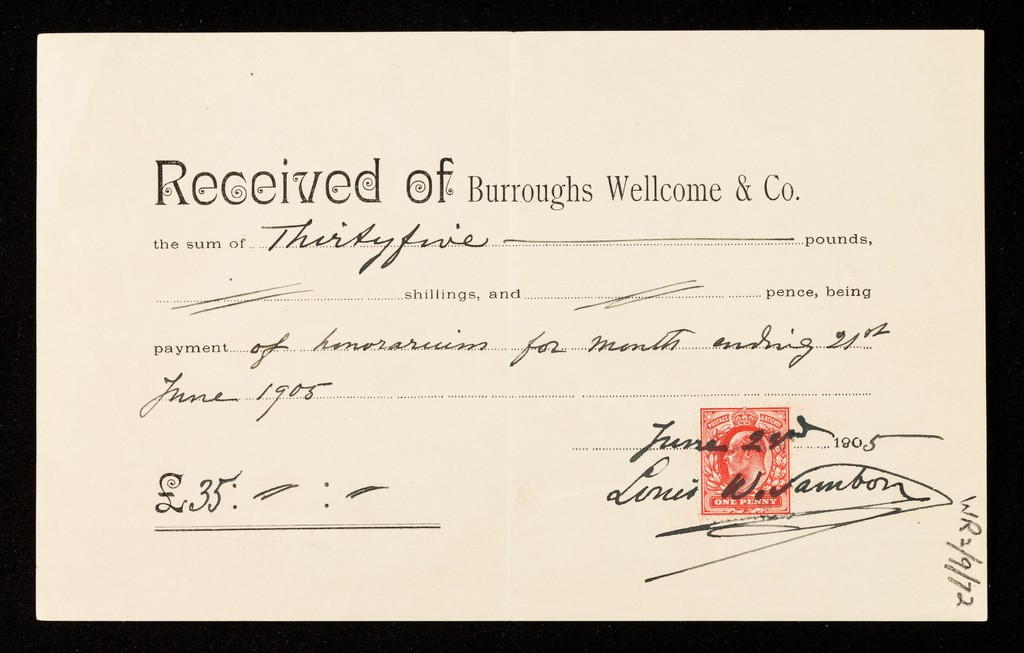 Received of Burroughs Wellcome & Co.
the sum of Thirtyfive pounds,
shillings, and pence, being
payment of honorarium for month ending 21st
June 1905
June 22nd 1905
POSTAGE REVENUE
Louis W. Sambon
ONE PENNY
£35: - : -
WR2/9/72